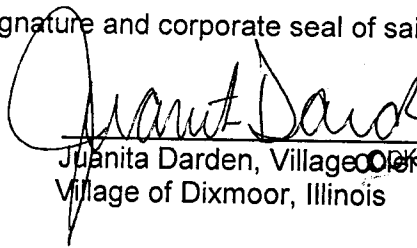 gnature and corporate seal of sai
Juanit Dard
Juanita Darden, Village
Village of Dixmoor, Illinois